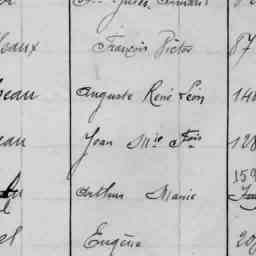 eaux François Victor 87
eau Auguste René Léon 14
eau Jean Mie Fois 128
Arthur Marie 159
el Eugène 20